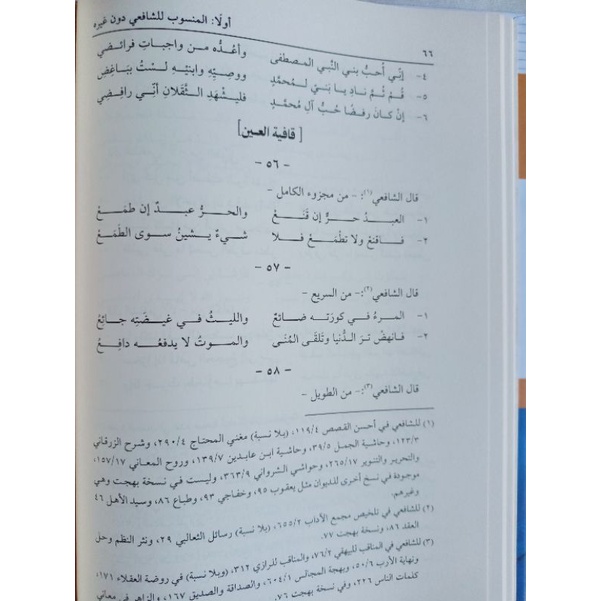 ٦٦ أولًا: المنسوب للشافعي دون غيره
٤- إنّي أحبُّ بني النّبي المصطفى وأعُدُّه من واجباتِ فرائضي
٥- قُمْ ثُمَّ نادِ يا بَنيَّ لمُحمَّدٍ ووصيِّه وابنَيْهِ لستُ بباغِضِ
٦- إن كانَ رفضًا حُبُّ آلِ محمَّدٍ فليشهدِ الثّقلانِ أنّي رافِضِي
[قافية العين]
- ٥٦ -
قال الشافعي(١):- من مجزوء الكامل -
١- العبدُ حرٌّ إن قَنَعْ والحرُّ عبدٌ إن طمَعْ
٢- فاقنعْ ولا تطْمَعْ فلا شيءٌ يشينُ سوى الطّمَعْ
- ٥٧ -
قال الشافعي(٢):- من السريع -
١- المرءُ في كورَتِه ضائعٌ والليثُ في غيضَتِه جائِعْ
٢- فانهضْ ترَ الدُّنيا وتلقَى المُنَى والموتُ لا يدفعُه دافِعْ
- ٥٨ -
قال الشافعي(٣):- من الطويل -
(١) للشافعي في أحسن القصص ١١٩/٤، (بلا نسبة) مغني المحتاج ٢٩٠/٤، وشرح الزرقاني
١٢٣/٣، وحاشية الجمل ٣٩/٥، وحاشية ابن عابدين ١٣٩/٧، وروح المعاني ١٥٧/١٧،
والتحرير والتنوير ٢٦٥/١٧، وحواشي الشرواني ٣٦٣/٩، وليست في نسخة بهجت وهي
موجودة في نسخ أخرى للديوان مثل يعقوب ٩٥، وخفاجي ٩٣، وطباع ٨٦، وسيد الأهل ٤٦
وغيرهم.
(٢) للشافعي في تلخيص مجمع الآداب ٦٥٥/٢، (بلا نسبة) رسائل الثعالبي ٢٩، ونثر النظم وحل
العقد ٨١، ونسخة بهجت ٧٧.
(٣) للشافعي في المناقب للبيهقي ٧٦/٢، والمناقب للرازي ٣١٢، و(بلا نسبة) في روضة العقلاء ١٧١،
ونهاية الأرب ٥٠/٦، وبهجة المجالس ٦٠٤/١، والصداقة والصديق ١٦٧، والزاهر في معاني
كلمات الناس ٢٢٦، وفي نسخة بهجت ٧٦.